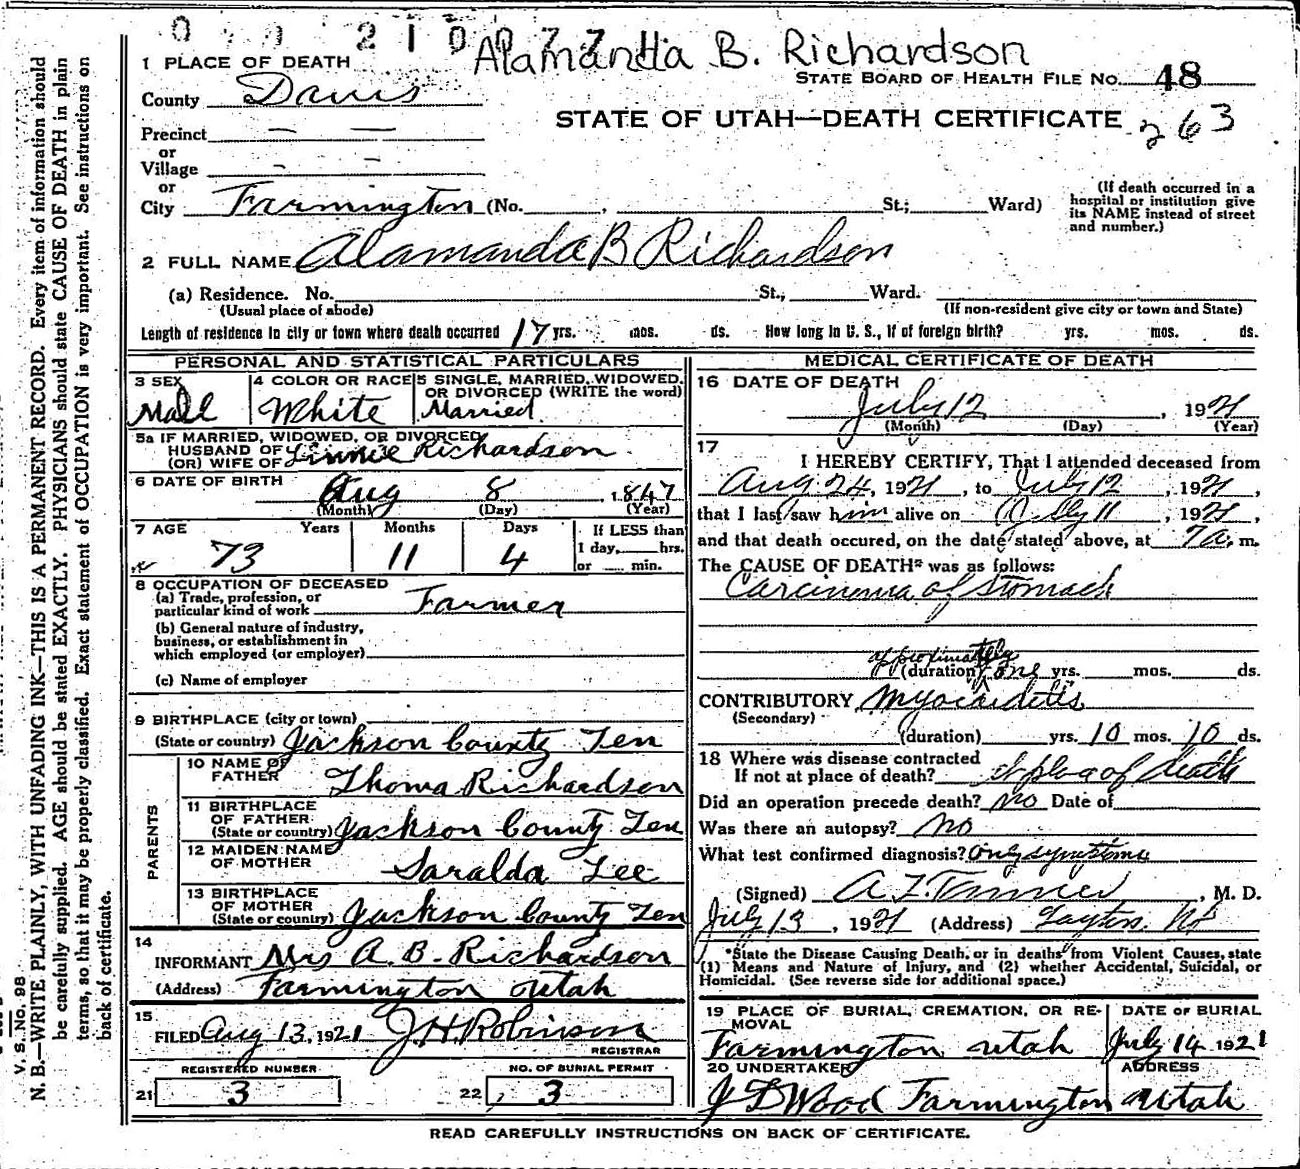 Alamanda B. Richardson
1 PLACE OF DEATH
STATE BOARD OF HEALTH FILE NO. 48
County Davis
STATE OF UTAH—DEATH CERTIFICATE 263
Precinct — —
or
Village - -
or
City Farmington (No. , St.; Ward)
(If death occurred in a hospital or institution give its NAME instead of street and number.)
2 FULL NAME Alamanda B Richardson
(a) Residence. No. St., Ward.
(Usual place of abode) (If non-resident give city or town and State)
Length of residence in city or town where death occurred 17 yrs. mos. ds. How long in U. S., if of foreign birth? yrs. mos. ds.
PERSONAL AND STATISTICAL PARTICULARS
3 SEX Mall
4 COLOR OR RACE White
5 SINGLE, MARRIED, WIDOWED, OR DIVORCED (WRITE the word) Married
5a IF MARRIED, WIDOWED, OR DIVORCED
HUSBAND OF
(OR) WIFE OF Linnie Richardson
6 DATE OF BIRTH Aug 8 1847
(Month) (Day) (Year)
7 AGE Years Months Days If LESS than
73 11 4 1 day, hrs.
or min.
8 OCCUPATION OF DECEASED
(a) Trade, profession, or
particular kind of work Farmer
(b) General nature of industry,
business, or establishment in
which employed (or employer)
(c) Name of employer
9 BIRTHPLACE (city or town)
(State or country) Jackson County Ten
PARENTS
10 NAME OF
FATHER Thoma Richardson
11 BIRTHPLACE
OF FATHER
(State or country) Jackson County Ten
12 MAIDEN NAME
OF MOTHER Saralda Lee
13 BIRTHPLACE
OF MOTHER
(State or country) Jackson County Ten
14
INFORMANT Mrs A. B. Richardson
(Address) Farmington Utah
15
FILED Aug 13, 1921 J. H. Robinson
REGISTRAR
REGISTERED NUMBER NO. OF BURIAL PERMIT
21 3 22 3
MEDICAL CERTIFICATE OF DEATH
16 DATE OF DEATH
July 12, 1921
(Month) (Day) (Year)
17
I HEREBY CERTIFY, That I attended deceased from
Aug 24, 1921, to July 12, 1921,
that I last saw him alive on July 11, 1921,
and that death occured, on the date stated above, at 7 a. m.
The CAUSE OF DEATH* was as follows:
Carcinoma of Stomach
approximately
(duration) one yrs. mos. ds.
CONTRIBUTORY Myocardetis
(Secondary)
(duration) yrs. 10 mos. 10 ds.
18 Where was disease contracted
If not at place of death? of death
Did an operation precede death? No Date of
Was there an autopsy? No
What test confirmed diagnosis? only symptoms
(Signed) A Z Tanner, M. D.
July 13, 1921 (Address) Layton,
*State the Disease Causing Death, or in deaths from Violent Causes, state
(1) Means and Nature of Injury, and (2) whether Accidental, Suicidal, or
Homicidal. (See reverse side for additional space.)
19 PLACE OF BURIAL, CREMATION, OR RE-
MOVAL
Farmington Utah
DATE OF BURIAL
July 14 1921
20 UNDERTAKER ADDRESS
J D Wood Farmington Utah
READ CAREFULLY INSTRUCTIONS ON BACK OF CERTIFICATE.
V. S. No. 98
N. B.—WRITE PLAINLY, WITH UNFADING INK—THIS IS A PERMANENT RECORD. Every item of information should
be carefully supplied. AGE should be stated EXACTLY. PHYSICIANS should state CAUSE OF DEATH in plain
terms, so that it may be properly classified. Exact statement of OCCUPATION is very important. See instructions on
back of certificate.